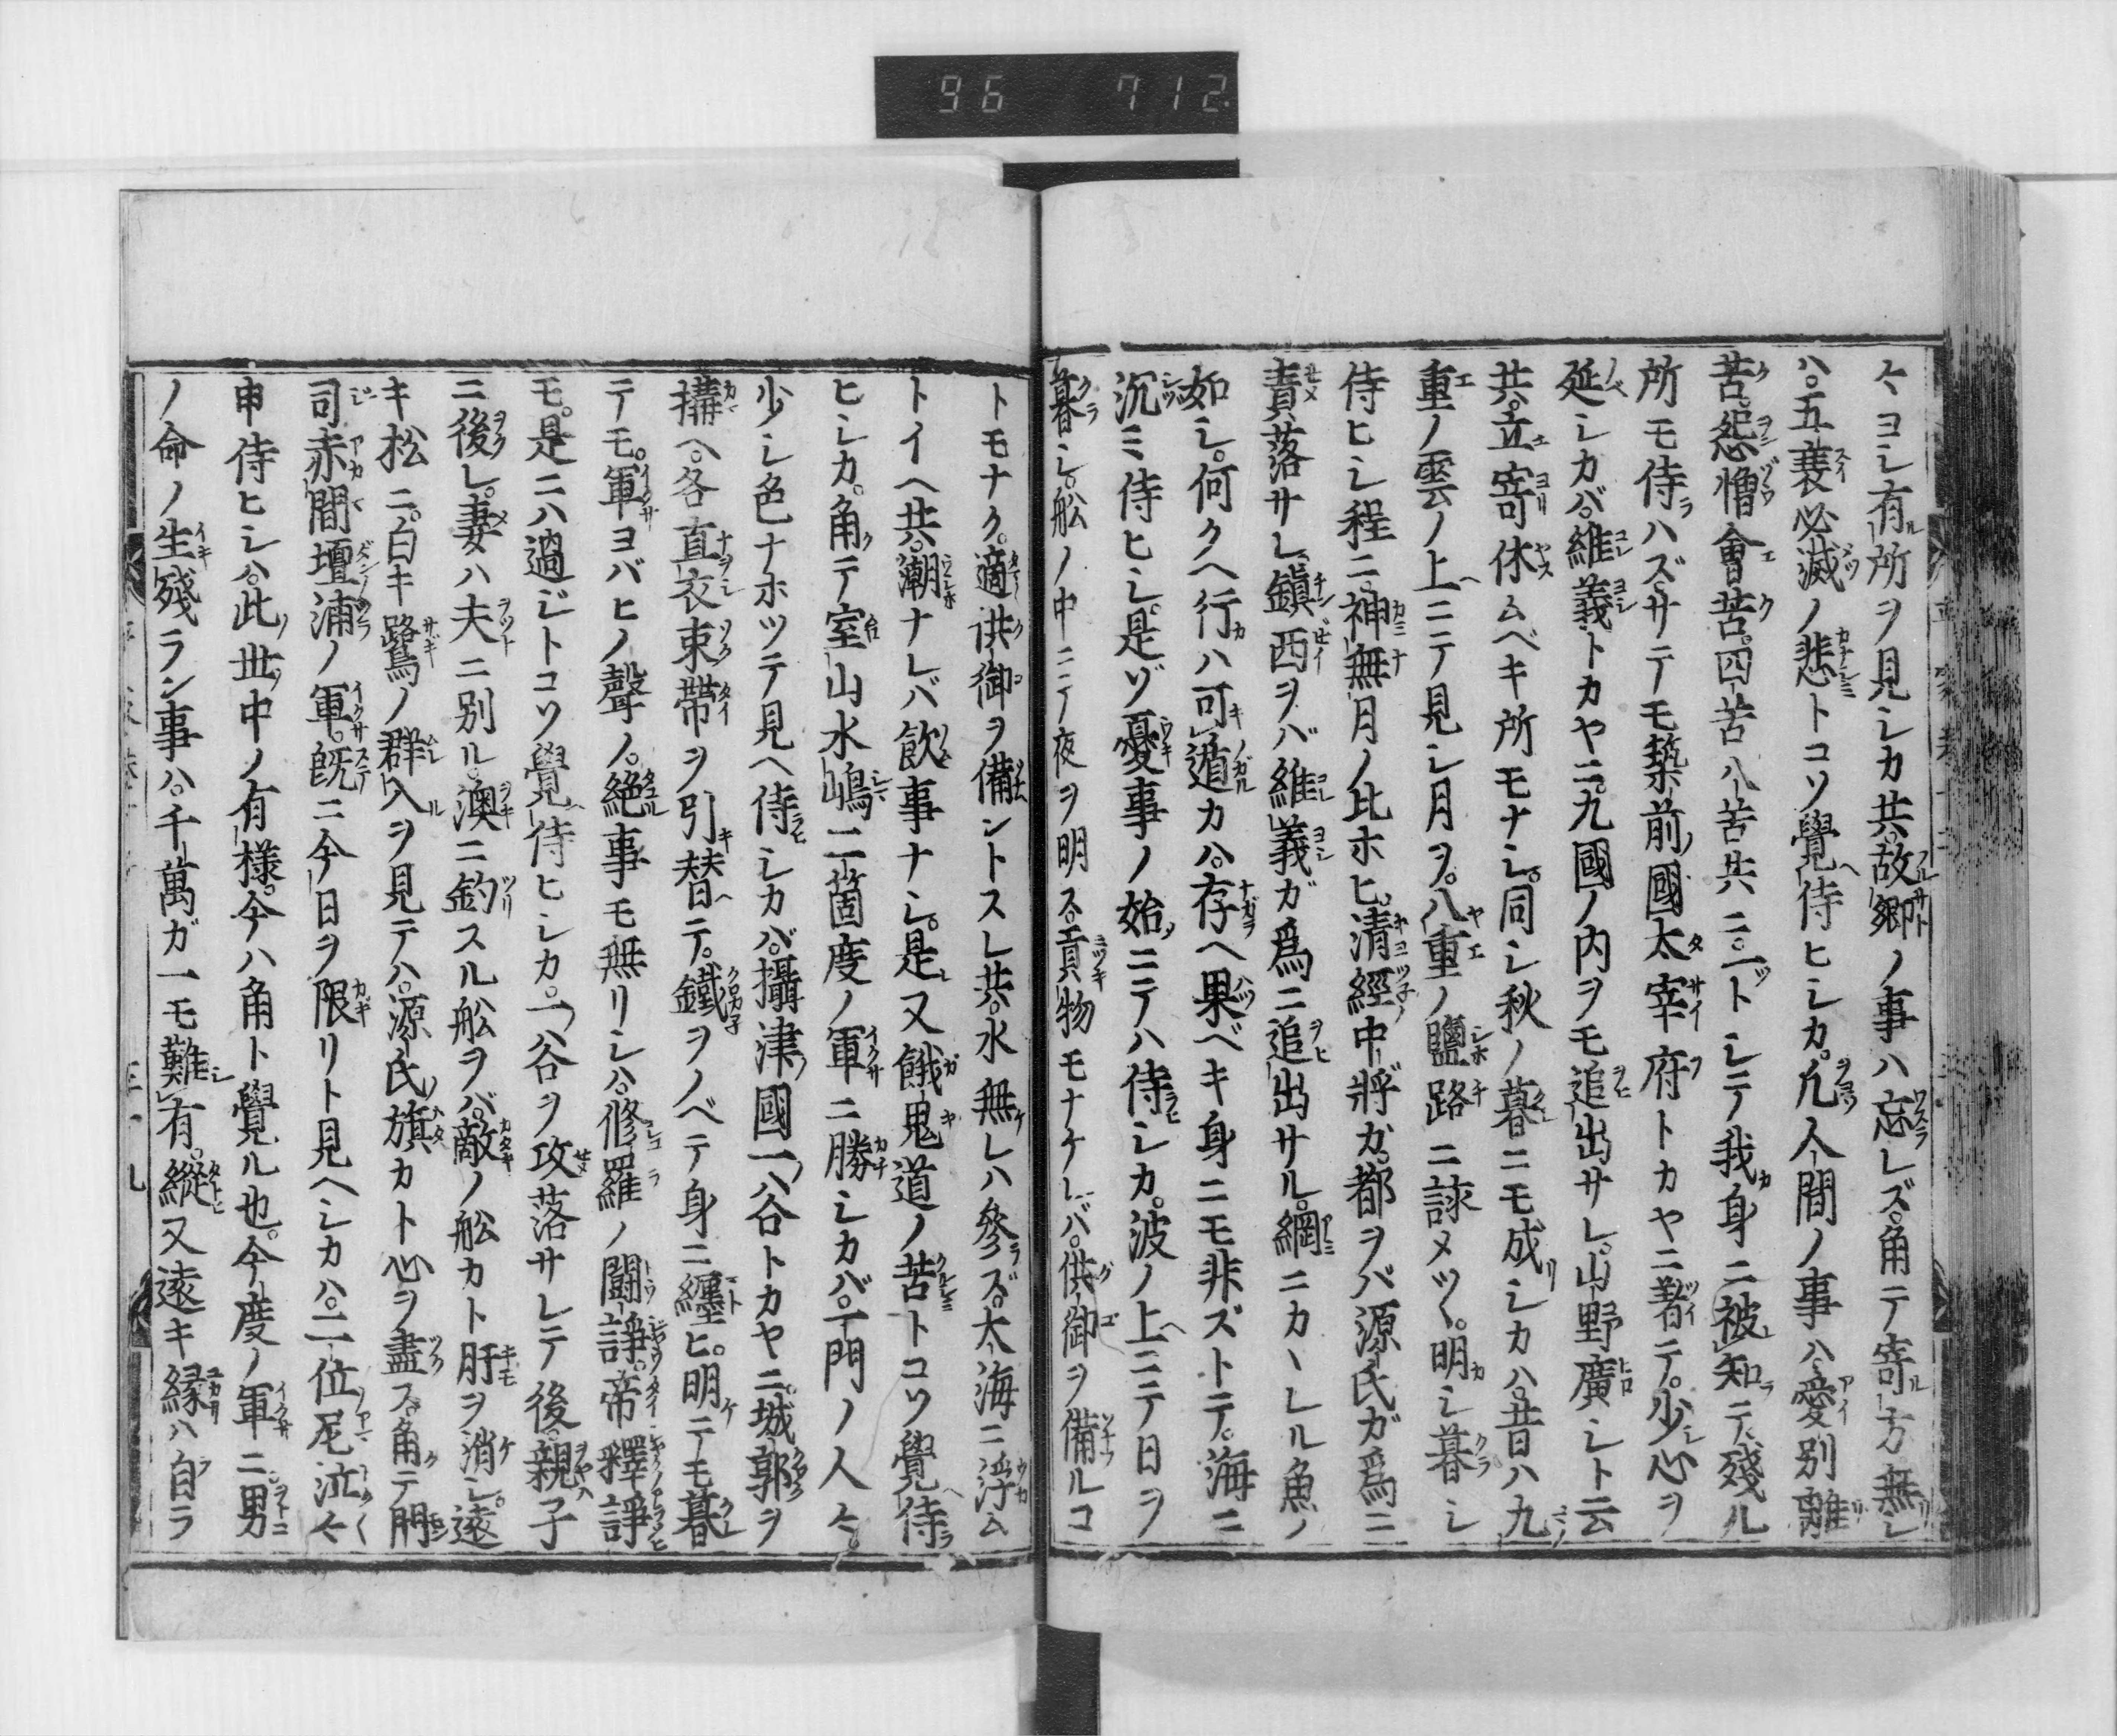 96 712
々ヨレ有所ヲ見シカ共。故郷ノ事ハ忘レズ。角テ寄方無レ
ハ。五衰必滅ノ悲トコソ覺侍ヒシカ。凡人間ノ事ハ愛別離
苦。怨憎會苦。四苦八苦共ニ。一トシテ我身ニ被知テ。殘ル
所モ侍ハズ。サテモ築前國太宰府トカヤニ著テ。少シ心ヲ
延シカバ。維義トカヤニ。九國ノ内ヲモ追出サレ。山野廣シト云
共。立寄休ムベキ所モナシ。同シ秋ノ暮ニモ成シカハ。昔ハ九
重ノ雲ノ上ニテ見シ月ヲ。八重ノ鹽路ニ詠メツヽ。明シ暮シ
侍ヒシ程ニ。神無月ノ比ホヒ。清經中將ガ。都ヲバ源氏ガ爲ニ
責落サレ。鎭西ヲバ維義ガ爲ニ追出サル。網ニカヽレル魚ノ
如シ。何クヘ行ハ可遁カハ。存ヘ果ベキ身ニモ非ズトテ。海ニ
沉ミ侍ヒシ。是ゾ憂事ノ始ニテハ侍シカ。波ノ上ニテ日ヲ
暮シ。舩ノ中ニテ夜ヲ明ス。貢物モナケレバ。供御ヲ備ルコ
トモナク。適供御ヲ備ントスレ共。水無レハ參ラズ。大海ニ浮ム
トイヘ共。潮ナレバ飲事ナシ。是又餓鬼道ノ苦トコソ覺侍
ヒシカ。角テ室山水嶋二箇度ノ軍ニ勝シカバ。一門ノ人々。
少シ色ナホツテ見ヘ侍シカバ。攝津國一ノ谷トカヤニ。城郭ヲ
搆ヘ。各直衣束帶ヲ引替テ。鐵ヲノベテ身ニ纏ヒ。明テモ暮
テモ。軍ヨバヒノ聲ノ。絶事モ無リシハ。修羅ノ闘諍。帝釋諍
モ。是ニハ過ジトコソ覺侍ヒシカ。一ノ谷ヲ攻落サレテ後。親ハ子
ニ後レ。妻ハ夫ニ別ル。澳ニ釣スル舩ヲバ。敵ノ舩カト肝ヲ消シ。遠
キ松ニ。白キ鷺ノ群入ヲ見テハ。源氏ノ旗カト心ヲ盡ス。角テ門
司赤間壇浦ノ軍。既ニ今日ヲ限リト見ヘシカハ。二位尼泣々
申侍ヒシハ。此世中ノ有様。今ハ角ト覺ル也。今度ノ軍ニ。男
ノ命ノ生殘ラン事ハ。千萬ガ一モ難有。縦又遠キ縁ハ自ラ